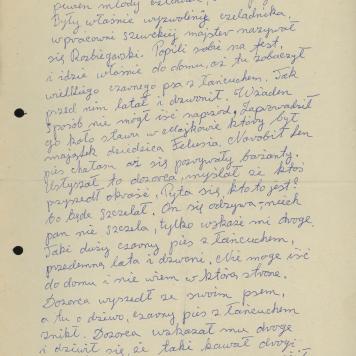 pewen młody człowiek,
Były właśnie wyzwoliny czeladnika,
w pracowni szewckiej majster nazywał
się Rozbiegarski. Popili sobie na fest,
i idzie właśnie do domu, aż tu zobaczył
wielkiego czarnego psa z łańcuchem. Jak
przed nim latał i dzwonił. W żaden
sposób nie mógł iść naprzód. Zaprowadził
go koło stawu w który był
majątek dziedzica Felusia. Narobił ten
pies chałasu aż się pozrywały bażanty.
Usłyszał to dozorca, myślał że ktoś
przyszedł okraść. Pyta się, kto to jest?
bo będę szczelał. On się odzywa - niech
pan nie szczela, tylko wskaże mi droge
Taki duży czarny pies z łańcuchem,
przedemną lata i dzwoni, Nie moge iść
do domu i nie wiem w którą strone.
Dozorca wyszedł ze swoim psem,
a tu o dziwo, czarny pies z łańcuchem
znikł. Dozorca wskazał mu droge
i dziwił się, że taki kawał drogi